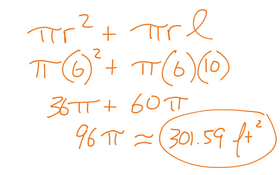 πr² + πrl
π(6)² + π(6)(10)
36π + 60π
96π ≈ 301.59 ft²